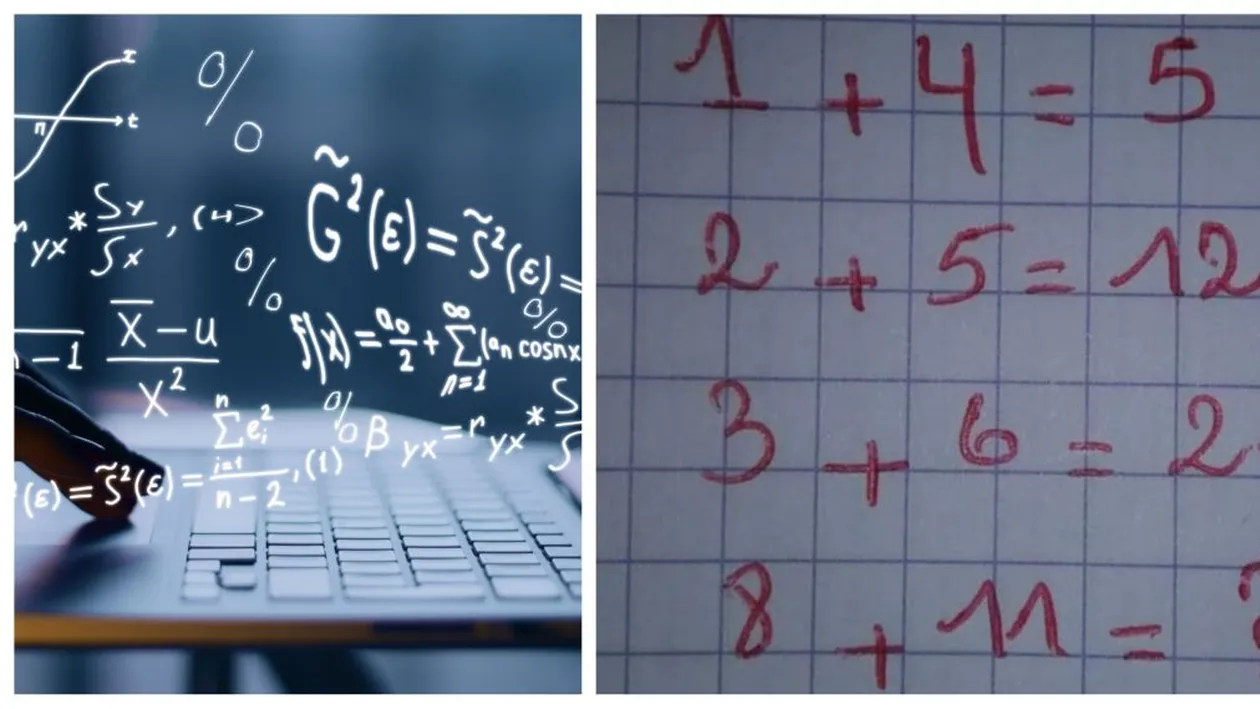 x
t
π
%
r yx * Sy/Sx , (4)
G̃²(ε) = S̃²(ε) =
%
%
n - 1
X̅ - u / X²
f(x) = a₀/2 + ∑ n=1 ∞ (aₙ cosnx
%
β yx = r yx * S/S
²(ε) = S̃²(ε) = ∑ i=1 n eᵢ² / n - 2 , (1)
1 + 4 = 5
2 + 5 = 12
3 + 6 = 2
8 + 11 =